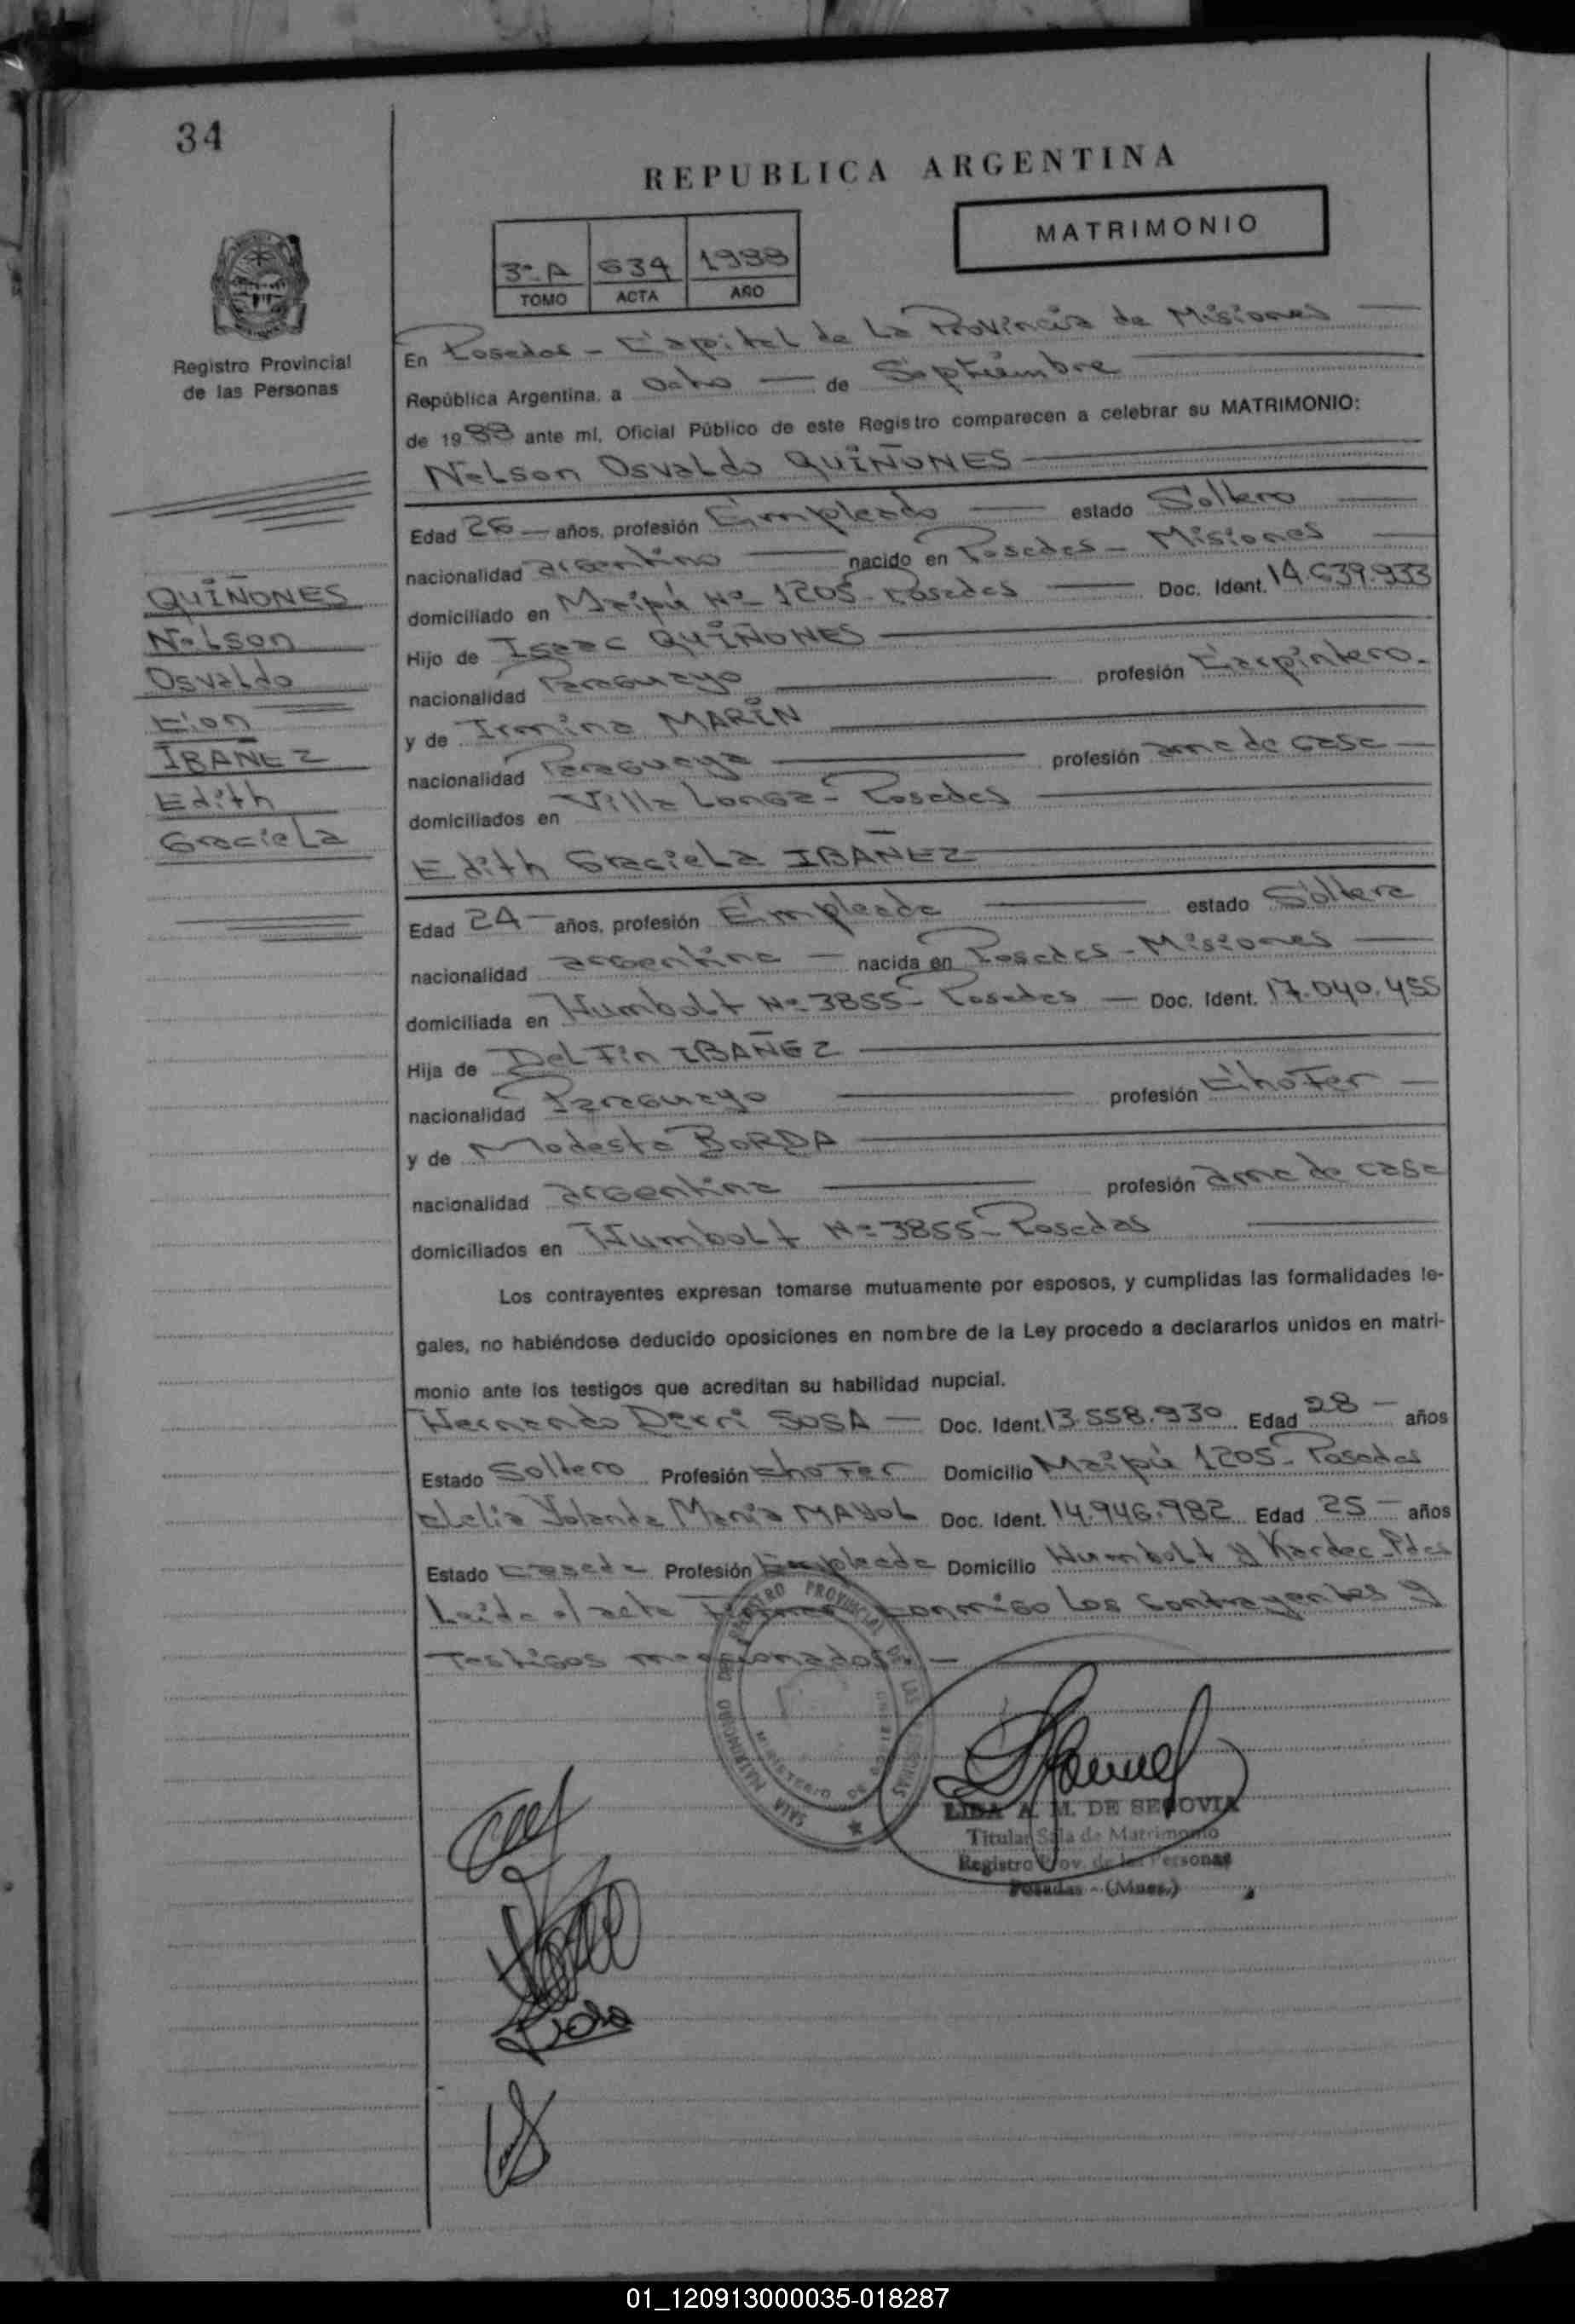 34
REPUBLICA ARGENTINA
MATRIMONIO
3º A 634 1988
TOMO ACTA AÑO
Registro Provincial
de las Personas
En Posadas - Capital de La Provincia de Misiones
República Argentina, a ocho de Septiembre
de 1988 ante mí, Oficial Público de este Registro comparecen a celebrar su MATRIMONIO:
Nelson Osvaldo QUIÑONES
Edad 26 años, profesión Empleado estado Soltero
nacionalidad argentino nacido en Posadas - Misiones
domiciliado en Maipú Nº 1205 - Posadas Doc. Ident. 14.639.933
Hijo de Isaac QUIÑONES
nacionalidad Paraguayo profesión Carpintero.
y de Irmina MARIN
nacionalidad Paraguaya profesión ama de casa
domiciliados en Villa Longa - Posadas
Edith Graciela IBAÑEZ
Edad 24 años, profesión Empleada estado Soltera
nacionalidad argentina nacida en Posadas - Misiones
domiciliada en Humbolt Nº 3855 - Posadas Doc. Ident. 17.040.455
Hija de Delfin IBAÑEZ
nacionalidad Paraguayo profesión Chofer
y de Modesta BORDA
nacionalidad argentina profesión ama de casa
domiciliados en Humbolt Nº 3855 - Posadas
Los contrayentes expresan tomarse mutuamente por esposos, y cumplidas las formalidades le-
gales, no habiéndose deducido oposiciones en nombre de la Ley procedo a declararlos unidos en matri-
monio ante los testigos que acreditan su habilidad nupcial.
Hernando Derri SOSA Doc. Ident. 13.558.930 Edad 28 años
Estado Soltero Profesión chofer Domicilio Maipú 1205 - Posadas
Clelia Yolanda Maria MAYOL Doc. Ident. 14.946.982 Edad 25 años
Estado casada Profesión Empleada Domicilio Humbolt y Kardec - Pdas
Leida el acta Firman conmigo los contrayentes y
Testigos mencionados. -
QUIÑONES
Nelson
Osvaldo
Con
IBAÑEZ
Edith
Graciela
SALA MATRIMONIO DEL REGISTRO PROVINCIAL DE LAS PERSONAS
MINISTERIO DE
LIDA A. M. DE SEGOVIA
Titular Sala de Matrimonio
Registro Prov. de las Personas
Posadas - (Mnes.)
01_120913000035-018287